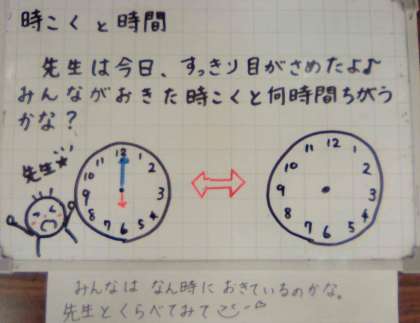 時こくと時間
先生は今日、すっきり目がさめたよ♪
みんながおきた時こくと何時間ちがう
かな？
先生★
12 1 2 3 4 5 6 7 8 9 10 11
12 1 2 3 4 5 6 7 8 9 10 11
みんなは なん時に おきているのかな。
先生とくらべてみて